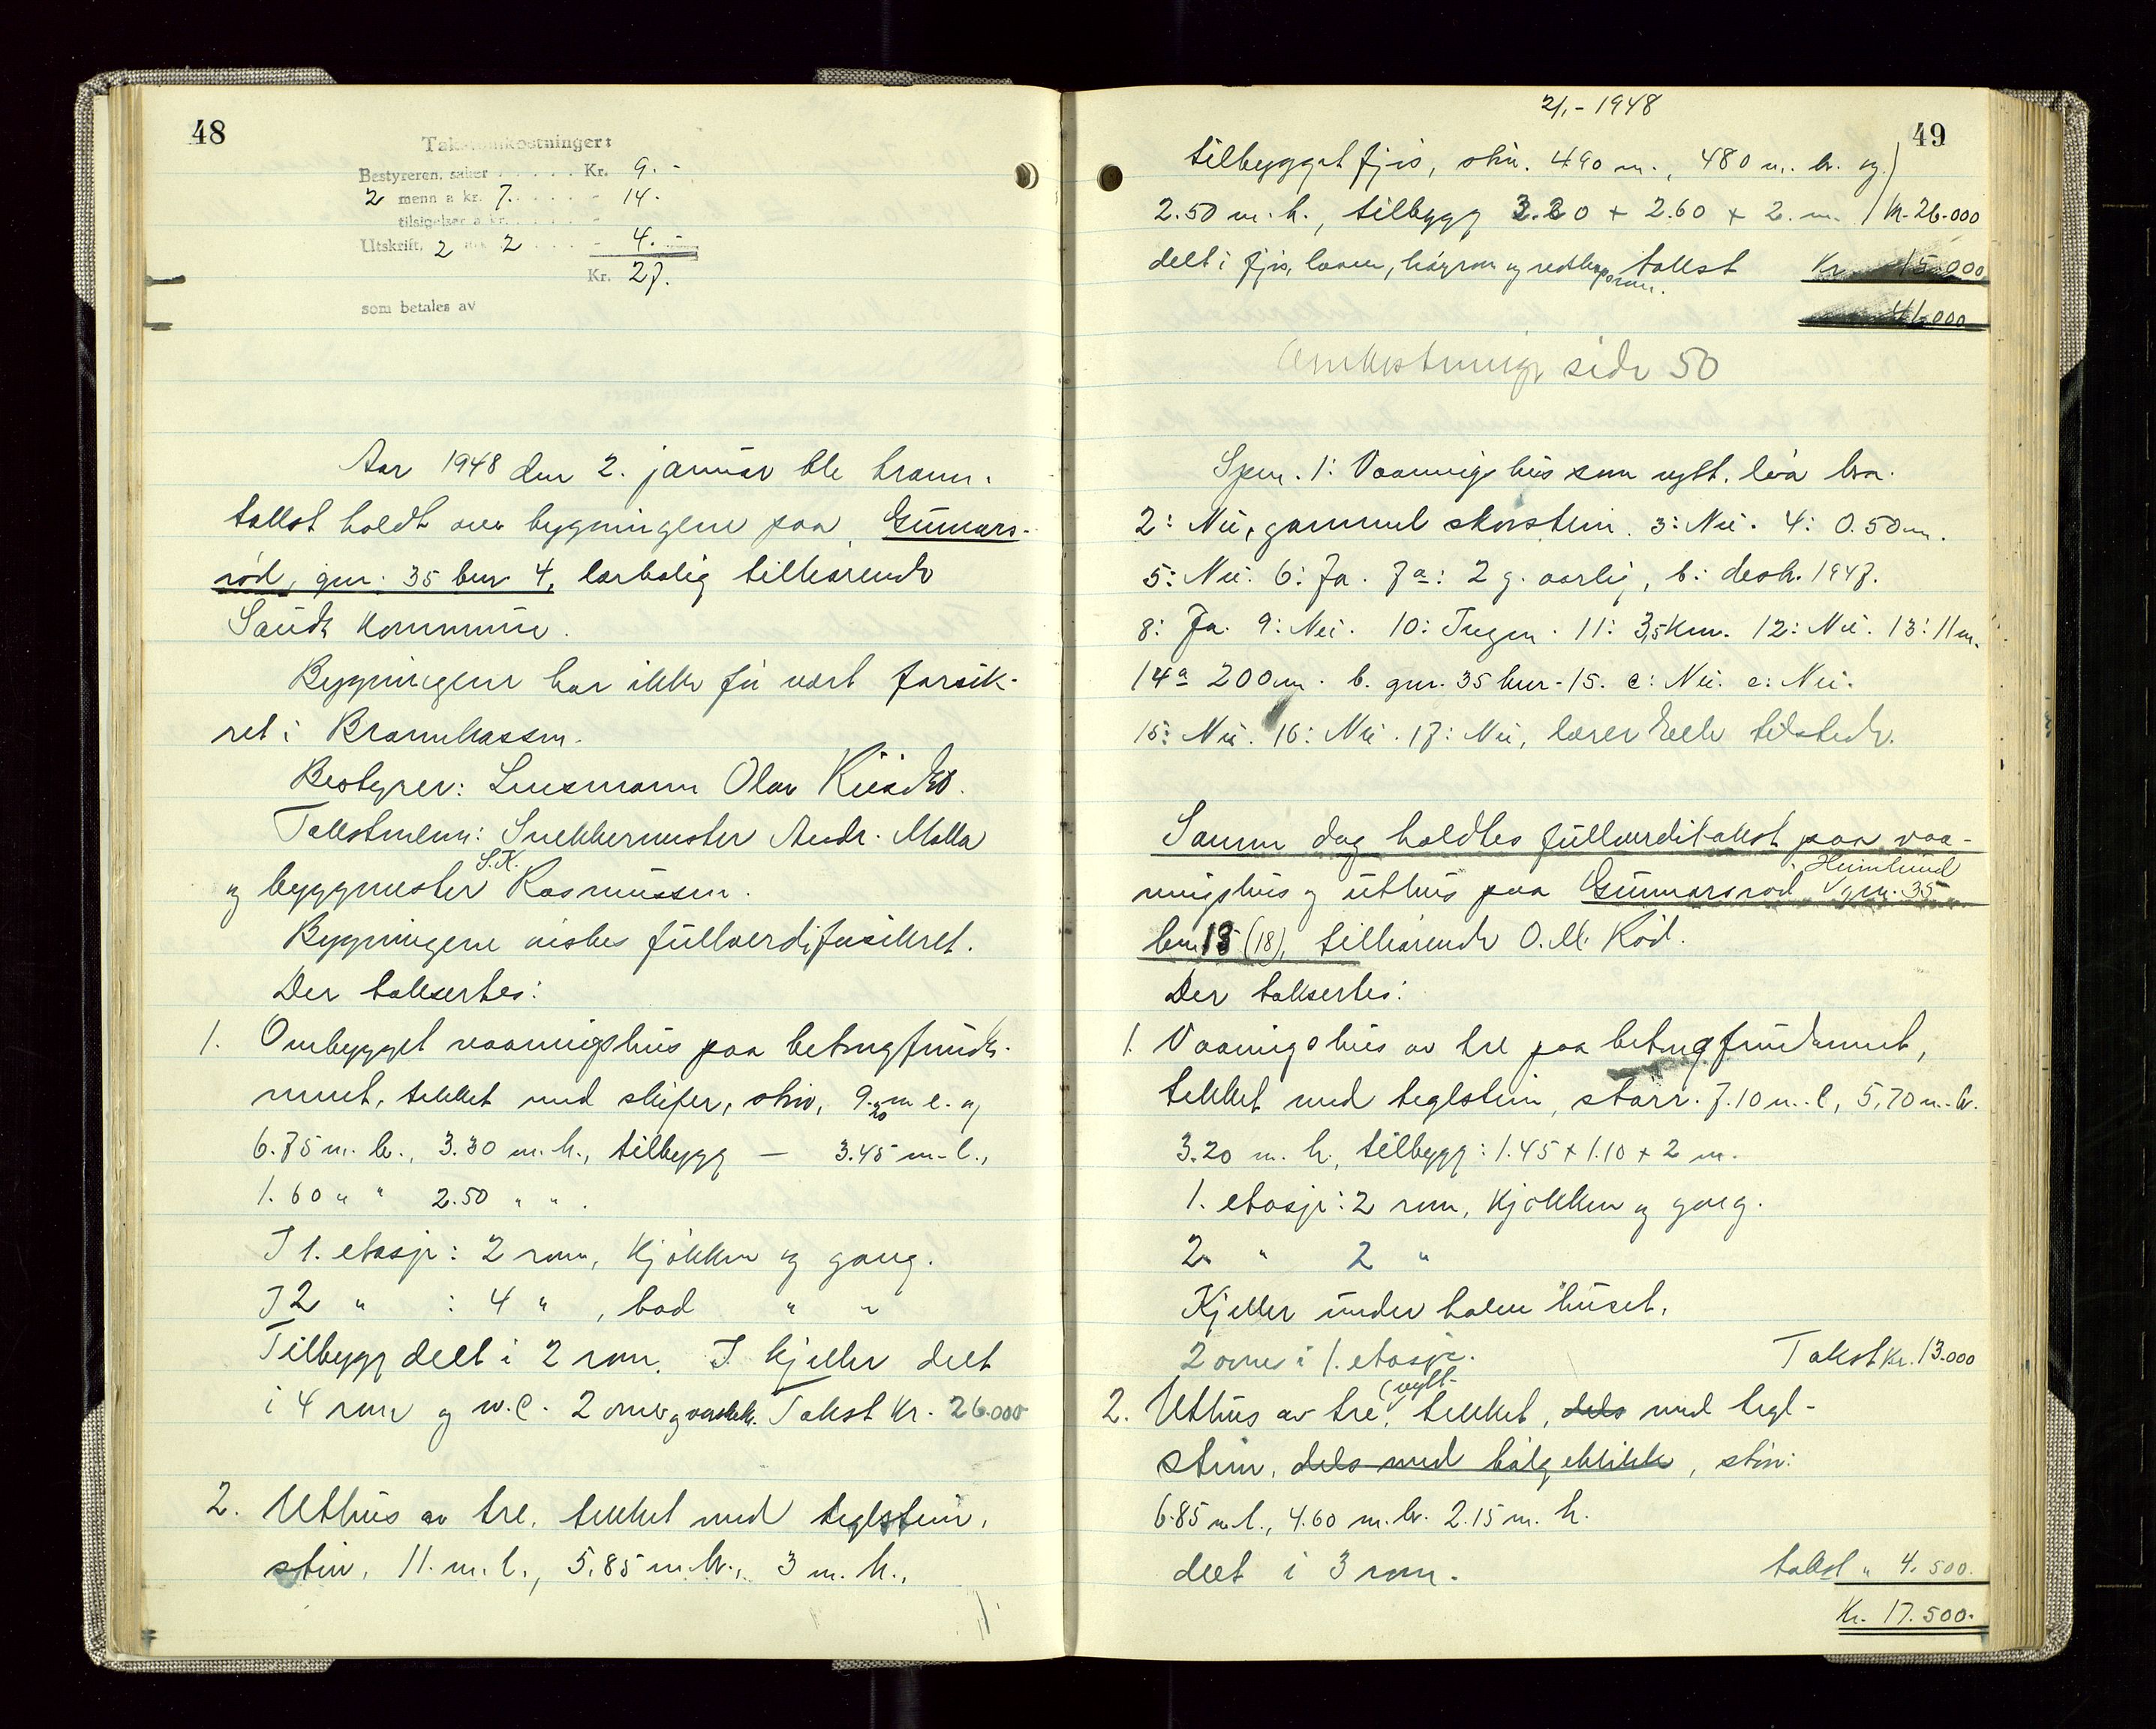 48
Takstomkostninger:
Bestyreren, saker . . . . . Kr. 9.-
2 menn a kr. 7. . . . . - 14.-
tilsigelser a kr. . . . . -
Utskrift, 2 ark 2 . . . . - 4.-
Kr. 27.
som betales av
Aar 1948 den 2. januar ble brann-
takst holdt over bygningene paa Gunnars-
rød, gnr. 35 bnr 4, lærbolig tilhørende
Sauda Kommune.
Bygningene har ikke før vært forsik-
ret i Brannkassen.
Bestyrer: Lensmann Olav
Takstmenn: Snekkermester Andr. Molla
S.K.
og byggmester Rasmussen.
Bygningene ønskes fullverdiforsikret.
Der takserttes:
1. Ombygget vaaningshus paa betongfunda-
ment, tekket med skifer, størr, 9.20 m l. og
6.75 m. br., 3.30 m. h., tilbygg — 3.45 m. l.,
1.60 " " 2.50 " " .
I 1. etasje: 2 rom, kjøkken og gang.
I 2 " : 4 " , bad " "
Tilbygg delt i 2 rom. I kjeller delt
i 4 rom og w.c. 2 omr og vaskek. Takst Kr. 26.000
2. Uthus av tre, tekket med teglstein,
størr, 11. m. l., 5.85 m br., 3 m. h.,
2/1 - 1948
49
tilbygget fjøs, størr. 4.90 m., 4.80 m. br. og
2.50 m. h., tilbygg 3.20 + 2.60 + 2. m. Kr. 26.000
delt i fjøs, laave, høyrom og redskapsrom. takst Kr. 15.000
41.000
Omkostninger side 50
Spm. 1: Vaaningshus som nytt. løa bra.
2: Nei, gammel skorstein. 3: Nei. 4: 0.50 m.
5: Nei. 6: Ja. 7a: 2 g. aarlig, b: desbr. 1947.
8: Ja. 9: Nei. 10: Ingen. 11: 3,5 km. 12: Nei. 13: 11 m.
14a 200 m. b. gnr. 35 bnr. 15. c: Nei. e: Nei.
15: Nei. 16: Nei. 17: Nei, lærer tilstede.
Samme dag holdtes fullverditakst paa vaa-
Heimlund
ningshus og uthus paa Gunnarsrød gnr. 35
bnr 15 (18), tilhørende O. M. Rød.
Der takserttes:
1. Vaaningshus av tre paa betongfundament,
tekket med teglstein, størr. 7.10 m. l, 5.70 m. br.
3.20 m. h., tilbygg: 1.45 + 1.10 + 2 m.
1. etasje: 2 rom, kjøkken og gang.
2. " 2 "
Kjeller under halve huset.
2 omr i 1. etasje. Takst Kr. 13.000
(nytt-
2. Uthus av tre, tekket, dels med tegl-
stein, dels med bølgeblikk, størr:
6.85 m. l., 4.60 m. br. 2.15 m. h.
delt i 3 rom. takst " 4.500.
Kr. 17.500.